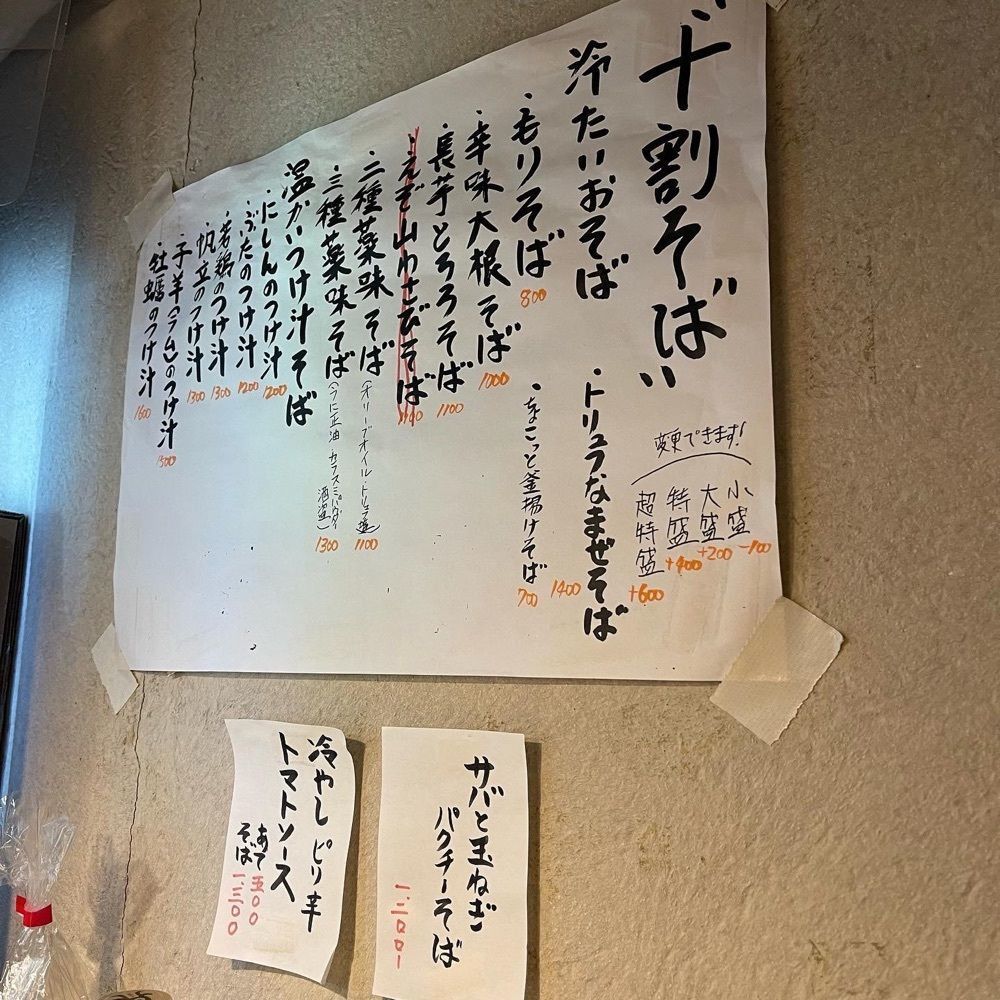 "十割そば"
冷たいおそば
・もりそば 800
・辛味大根そば 1000
・長芋とろろそば 1100
・えぞ山わさびそば 1100
・二種薬味そば (オリーブオイル・トリュフ塩) 1100
・三種薬味そば 酒盗) 1300
温かいつけ汁そば
・にしんのつけ汁 1200
・ぶたのつけ汁 1200
・若鶏のつけ汁 1300
・帆立のつけ汁 1300
・子羊(ラム)のつけ汁 1500
・牡蠣のつけ汁 1600
・トリュフなまぜそば 1400
・ちょこっと釜揚げそば 700
変更できます!
小盛 -100
大盛 +200
特盛 +400
超特盛 +600
サバと玉ねぎ
パクチーそば
一、三〇〇ー
冷やしピリ辛
トマトソース
あて 五〇〇
そば 一、三〇〇